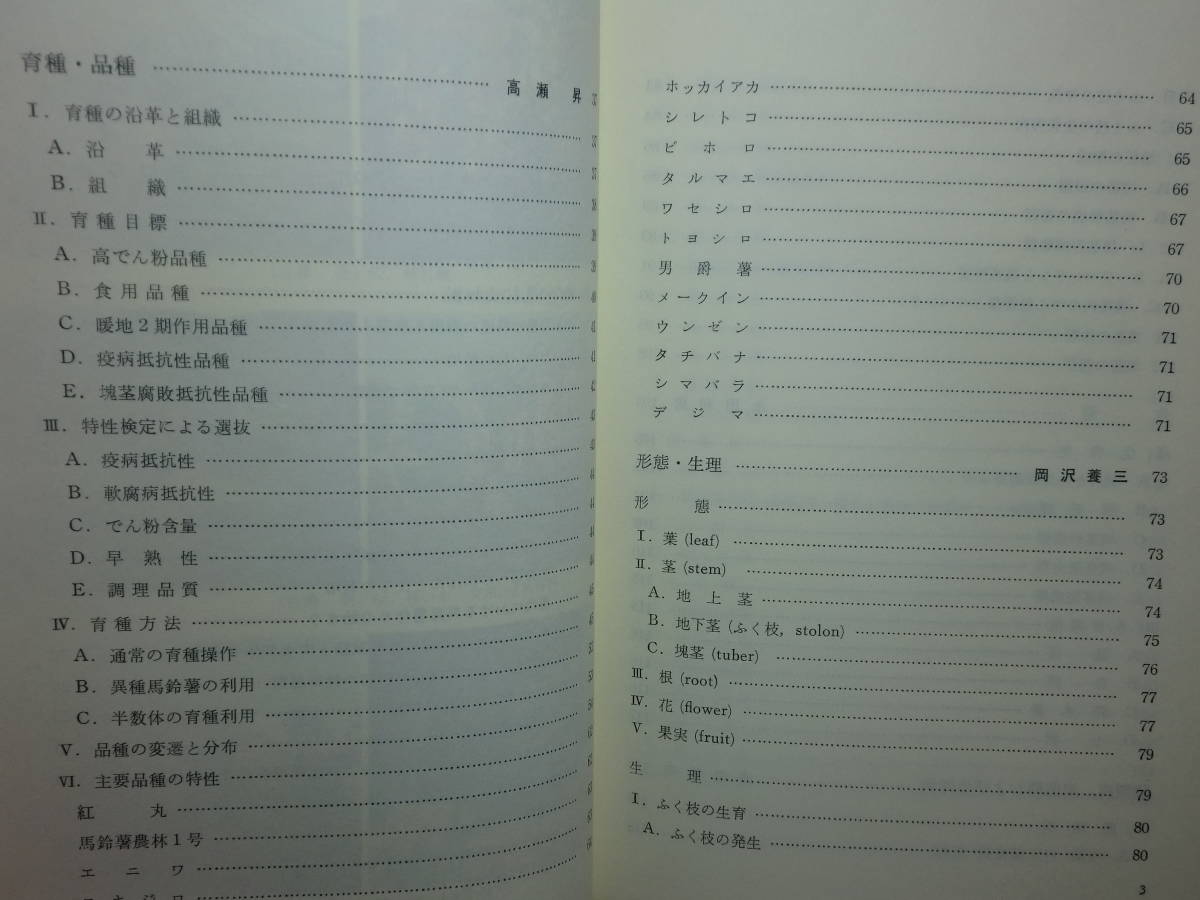 育種・品種 …… 高瀬 昇
Ⅰ．育種の沿革と組織 ……
A．沿 革 …… 37
B．組 織 ……
Ⅱ．育種目標 ……
A．高でん粉品種 ……
B．食用品種 ……
C．暖地2期作用品種 ……
D．疫病抵抗性品種 ……
E．塊茎腐敗抵抗性品種 ……
Ⅲ．特性検定による選抜 ……
A．疫病抵抗性 ……
B．軟腐病抵抗性 ……
C．でん粉含量 ……
D．早熟性 ……
E．調理品質 ……
Ⅳ．育種方法 ……
A．通常の育種操作 ……
B．異種馬鈴薯の利用 ……
C．半数体の育種利用 ……
Ⅴ．品種の変遷と分布 ……
Ⅵ．主要品種の特性 ……
紅 丸 ……
馬鈴薯農林1号 ……
エ ニ ワ ……
ホッカイアカ …… 64
シレトコ …… 65
ビ ホ ロ …… 65
タルマエ …… 66
ワセシロ …… 67
トヨシロ …… 67
男 爵 薯 …… 70
メークイン …… 70
ウンゼン …… 71
タチバナ …… 71
シマバラ …… 71
デ ジ マ …… 71
形態・生理 …… 岡沢養三 73
形 態 …… 73
Ⅰ．葉 (leaf) …… 73
Ⅱ．茎 (stem) …… 74
A．地 上 茎 …… 74
B．地下茎 (ふく枝, stolon) …… 75
C．塊茎 (tuber) …… 76
Ⅲ．根 (root) …… 77
Ⅳ．花 (flower) …… 77
Ⅴ．果実 (fruit) …… 79
生 理 …… 79
Ⅰ．ふく枝の生育 …… 80
A．ふく枝の発生 …… 80
3